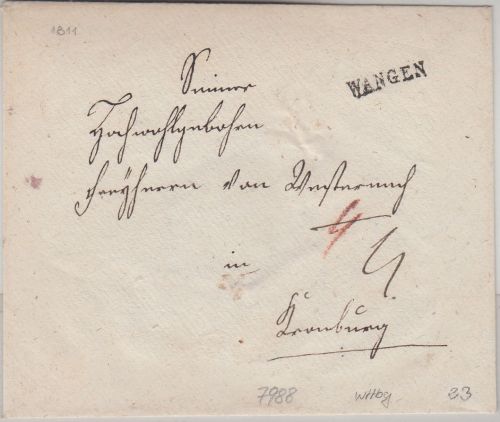 1811
WANGEN
Seiner
Hochwohlgebohren
Freyherrn von Westernach
4
4
in
Kronburg
7988 Wttbg 23